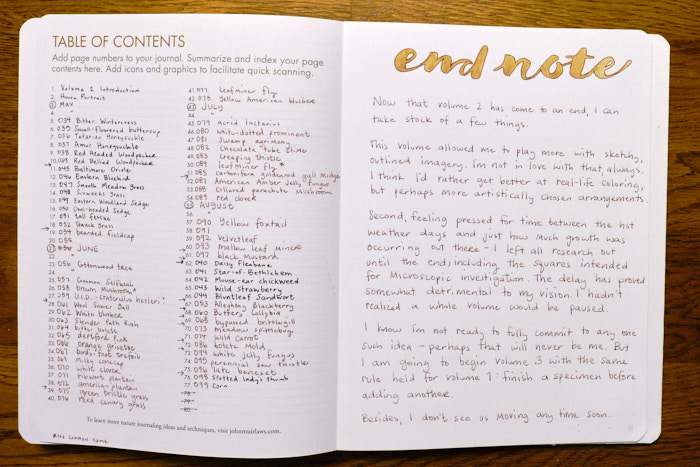 TABLE OF CONTENTS
Add page numbers to your journal. Summarize and index your page
contents here. Add icons and graphics to facilitate quick scanning.
1. Volume 2 Introduction
2. House Portrait
3 MAY
4. "
5. 034 Bitter Wintercress
6. 035 Small-flowered buttercup
7. 036 Tatarian Honeysuckle
8. 037 Amur Honeysuckle
9. 038 Red Headed Woodpecker
10. 039 Red Bellied Woodpecker
11. 045 Baltimore Oriole
12. 046 Eastern Bluebird
13. 047 Smooth Meadow Grass
14. 048 Sixweeks Grass
15. 049 Eastern Woodland Sedge
16. 050 Oval-headed Sedge
17. 051 tall fescue
18. 052 Quack Grass
19. 054 bearded fieldcap
20. 055
21 JUNE
22. "
23. 056 Cottonwood tree
24. "
25. 057 Common Selfheal
26. 058 brown mushroom
27. 059 U.S.O. - Crataegus
28. 061 Wood Sorrel
29. 062 White
30. 063 Slender Path Rush
31. 064 bitter bolete
32. 065 deptford pink
33. 066 orange grisette
34. 067 birds-foot trefoil
35. 069 milky conecap
36. 070 white clover
37. 071 ribwort plantain
38. 072 american plantain
39. 075 green bristle grass
40. 076 reed canary grass
41. 077 leafminer fly
42. 078 yellow American blusher
43 JULY
44. "
45. 079 acrid lactarius
46. 080 white-dotted prominent
47. 081 Swamp agrimony
48. 082 Chocolate tube slime
49. 083 Creeping thistle
50. 084 leafminer fly
51. 085 carbonifera goldenrod gall midge
52. 087 American Amber Jelly fungus
53. 088 Collared parachute mushroom
54. 089 red clover
55 AUGUST
56. "
57. 090 Yellow foxtail
58. 091
59. 092 Velvetleaf
60. 093 Mallow leaf miner
61. 097 black mustard
62. 040 Daisy Fleabane
63. 041 Star-of-Bethlehem
64. 042 Mouse-ear chickweed
65. 043 Wild strawberry
66. 044 Bluntleaf Sandwort
67. 053 Allegheny Blackberry
68. 060 Buttery Collybia
69. 068 bypassed brittlegill
70. 073 Meadow spittlebug
71. 074 Wild Carrot
72. 086 bolete Mold
73. 094 White jelly fungus
74. 095 perennial sow thistle
75. 096 late boneset
76. 098 Spotted lady's thumb
77. 099 Corn
78.
79.
80.
To learn more nature journaling ideas and techniques, visit johnmuirlaws.com.
common name
end note
Now that volume 2 has come to an end, I can
take stock of a few things.
This volume allowed me to play more with sketchy,
outlined imagery. I'm not in love with that, always.
I think I'd rather get better at real-life coloring,
but perhaps more artistically chosen arrangements.
Second, feeling pressed for time between the hot
weather days and just how much growth was
occurring out there - I left all research out
until the end, including the squares intended
for Microscopic investigation. The delay has proved
somewhat detrimental to my vision. I hadn't
realized a whole volume would be paused.
I know I'm not ready to fully commit to any one
such idea - perhaps that will never be me. But
I am going to begin volume 3 with the same
rule held for volume 1: finish a specimen before
adding another.
Besides, I don't see us moving any time soon.